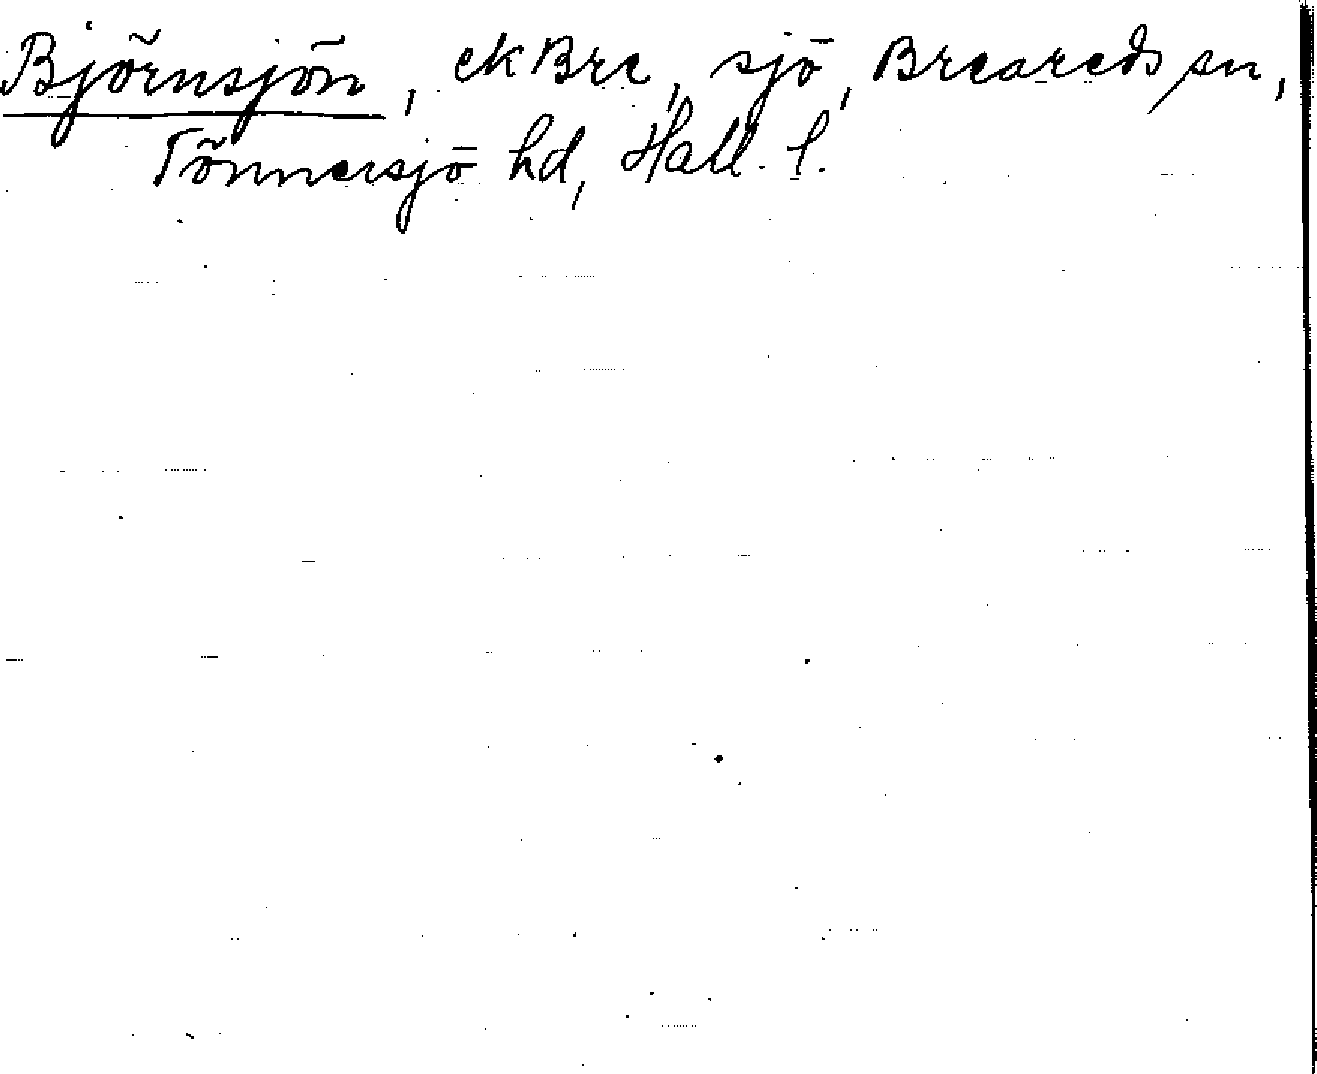 Björnsjön, ekBre, sjö, Breareds sn,
Tönnersjö hd, Hall. l.